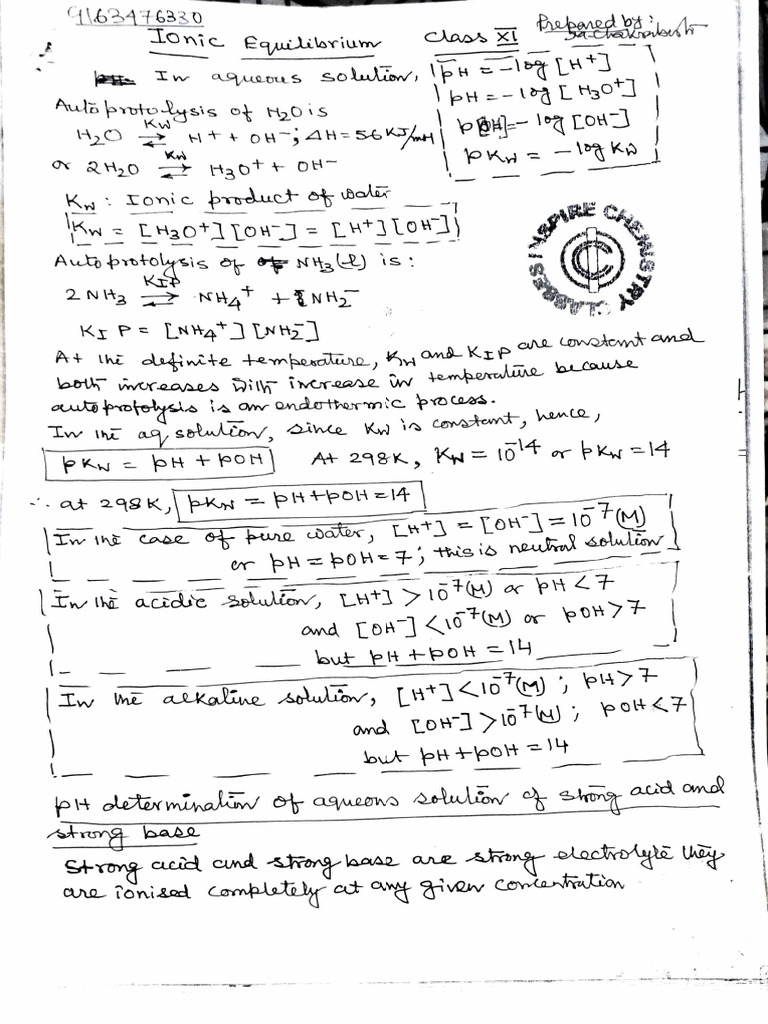 9163476330
Ionic Equilibrium Class XI Prepared by:
In aqueous solution,
pH = -log [H+]
pH = -log [H3O+]
p[OH] = -log [OH-]
pKw = -log Kw
Autoprotolysis of H2O is
H2O ⇌ (Kw) H+ + OH-; ΔH = 56 KJ/mol
or 2H2O ⇌ (Kw) H3O+ + OH-
Kw : Ionic product of water
Kw = [H3O+][OH-] = [H+][OH-]
INSPIRE CHEMISTRY CLASSES
Autoprotolysis of NH3(l) is:
2NH3 ⇌ (KIP) NH4+ + NH2-
KIP = [NH4+][NH2-]
At the definite temperature, Kw and KIP are constant and
both increases with increase in temperature because
autoprotolysis is an endothermic process.
In the aq solution, since Kw is constant, hence,
pKw = pH + pOH At 298K, Kw = 10^-14 or pKw = 14
∴ at 298K, pKw = pH + pOH = 14
In the case of pure water, [H+] = [OH-] = 10^-7 (M)
or pH = pOH = 7; this is neutral solution
In the acidic solution, [H+] > 10^-7 (M) or pH < 7
and [OH-] < 10^-7 (M) or pOH > 7
but pH + pOH = 14
In the alkaline solution, [H+] < 10^-7 (M); pH > 7
and [OH-] > 10^-7 (M); pOH < 7
but pH + pOH = 14
pH determination of aqueous solution of strong acid and
strong base
Strong acid and strong base are strong electrolyte they
are ionised completely at any given concentration